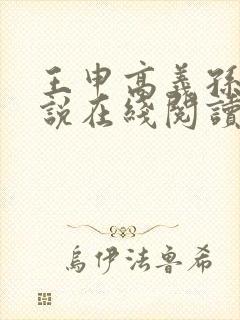 王申高義孫
說在綫閱讀
烏伊法魯希